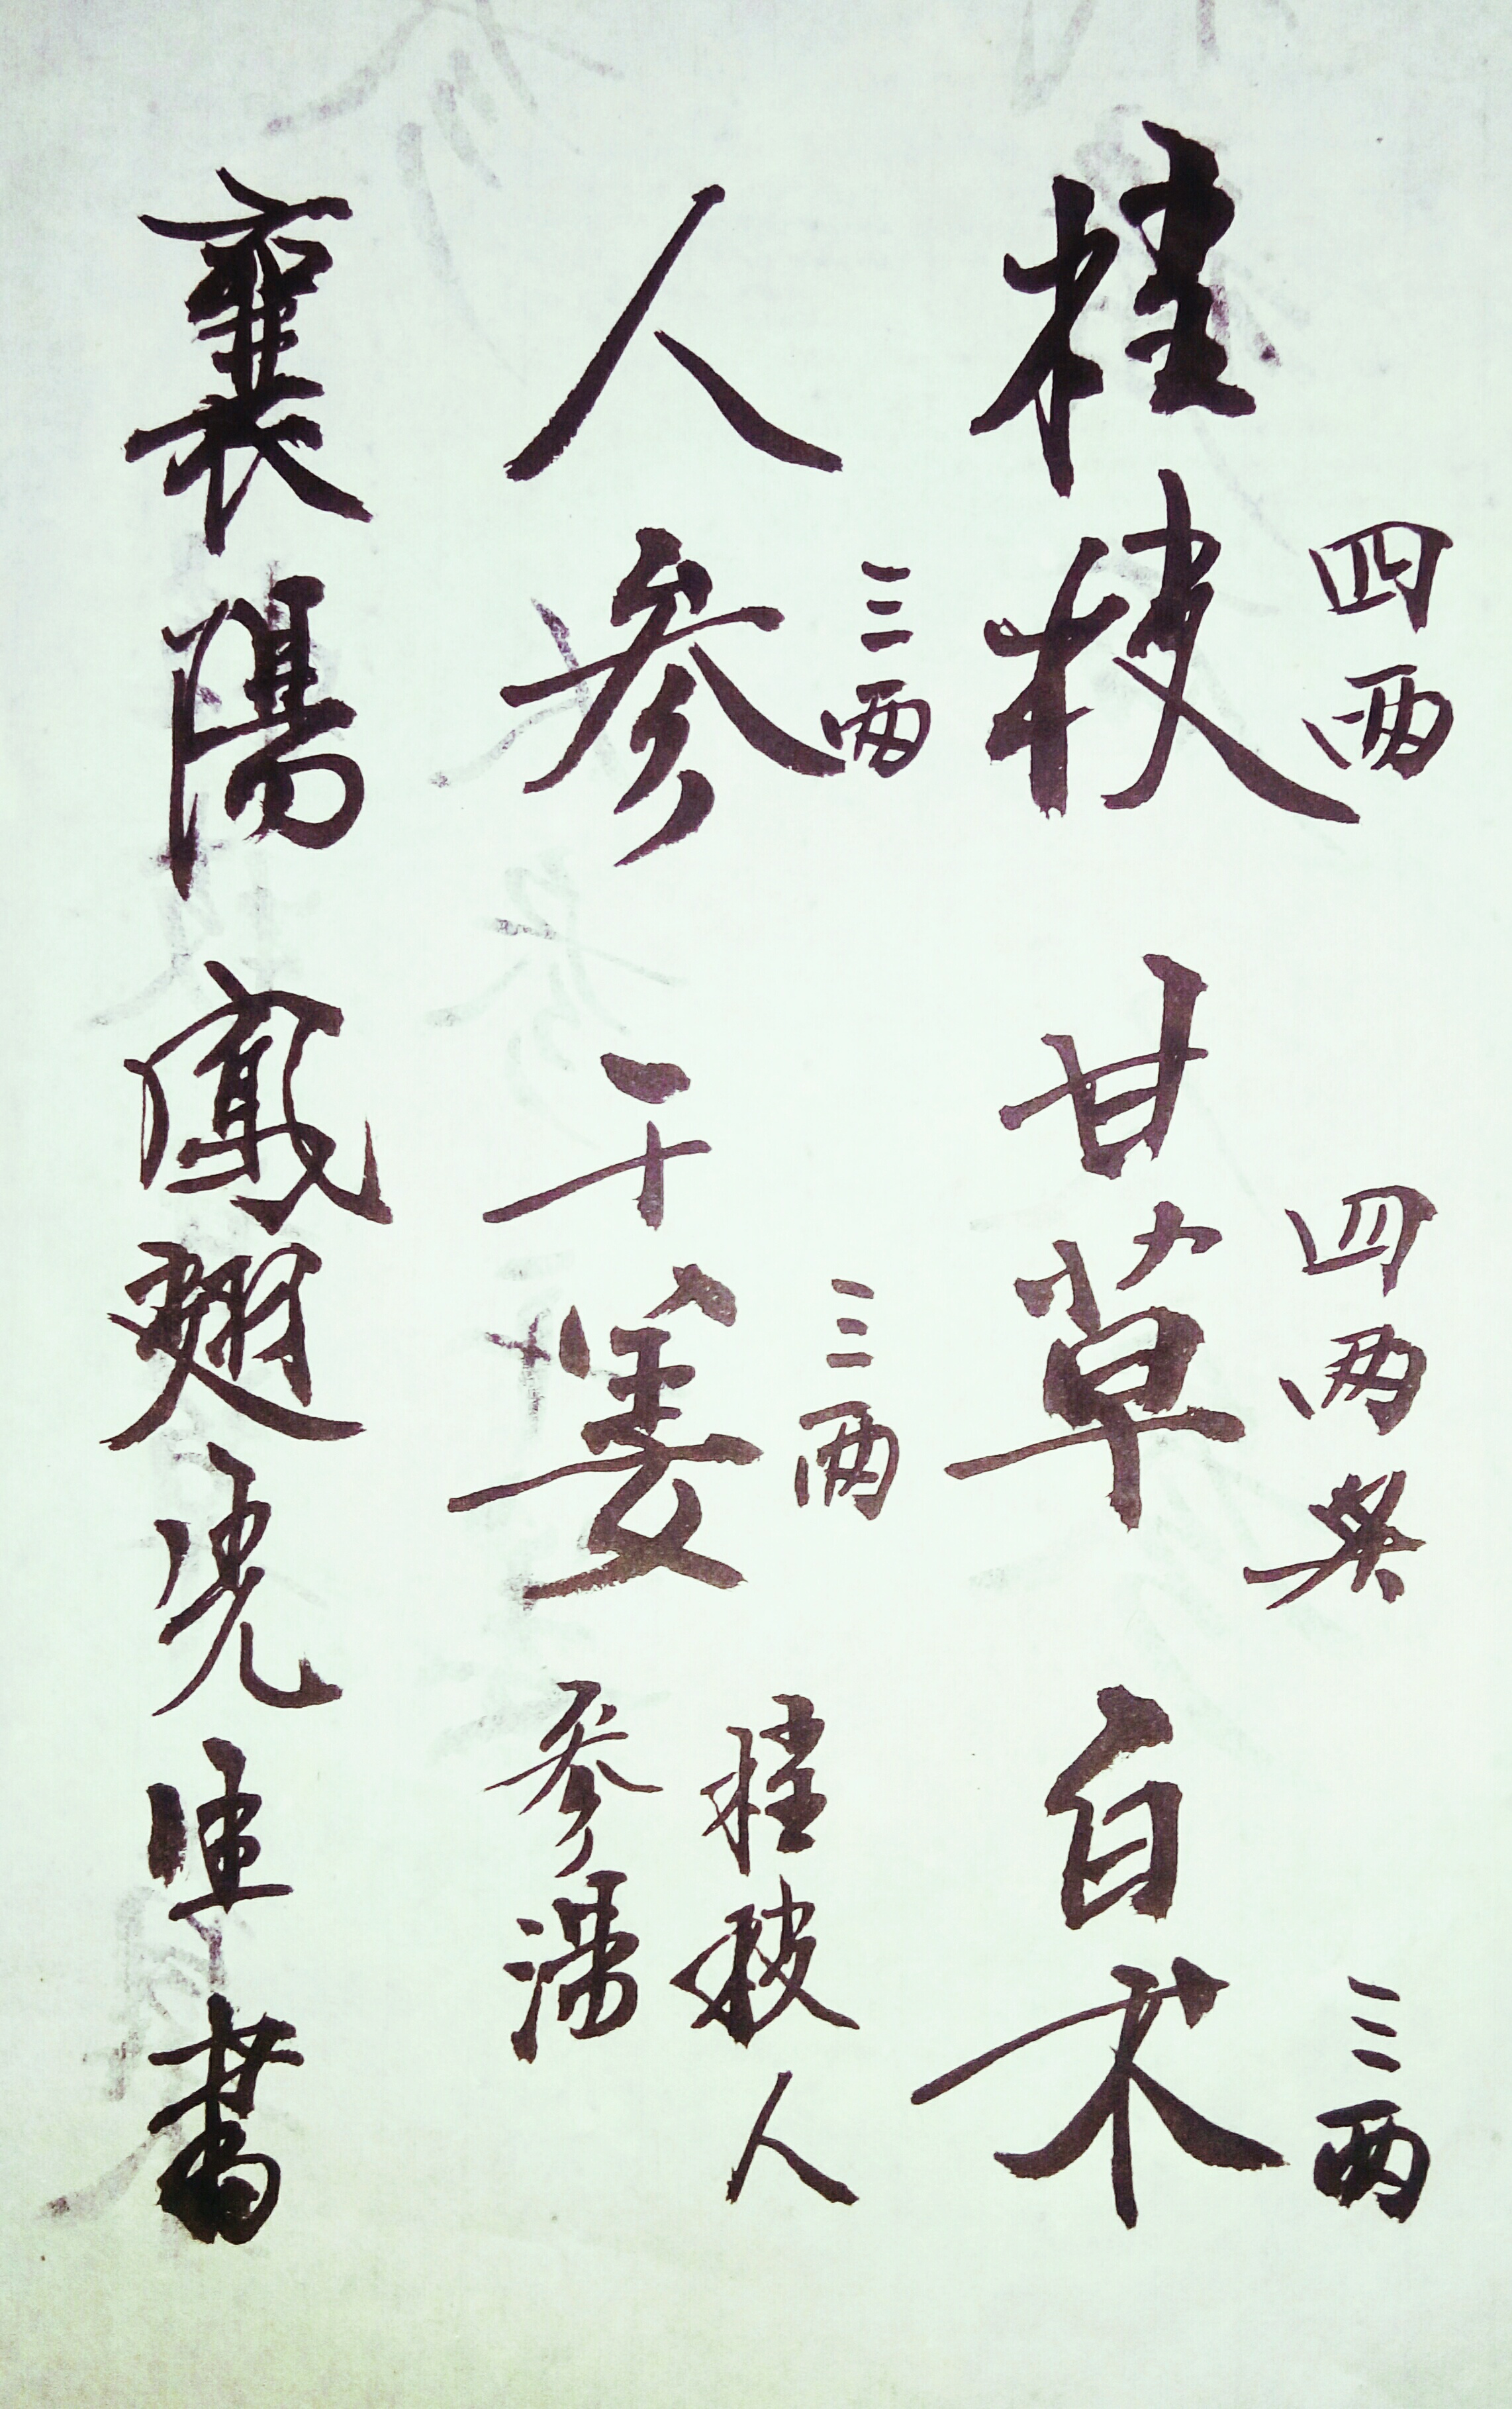 桂枝 四两 甘草 四两炙 白术 三两
人参 三两 干姜 三两 桂枝人参湯
襄陽 鳳翅先生書